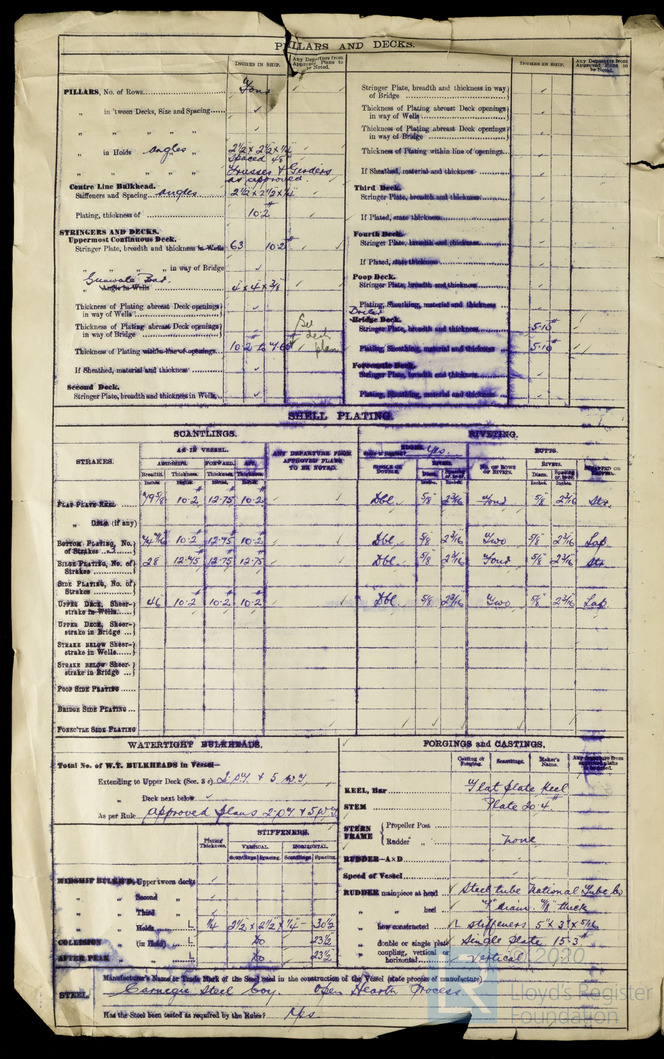 PILLARS AND DECKS.
INCHES IN SHIP. Any Departure from Approved Plans to be Noted.
PILLARS, No. of Rows Four
" in 'tween Decks, Size and Spacing
" " " "
" in Holds Angles 2½ x 2½ x ¼
Spaced 48"
" " " " Trusses & Girders
as approved
Centre Line Bulkhead.
Stiffeners and Spacing Angles 2½ x 2½ x ¼
Plating, thickness of 10.2#
STRINGERS AND DECKS.
Uppermost Continuous Deck.
Stringer Plate, breadth and thickness in Wells 63 10.2#
" " " " in way of Bridge
Gunwale Bar
" Angle in Wells 4 x 4 x 3/8
Thickness of Plating abreast Deck openings in way of Wells
Thickness of Plating abreast Deck openings in way of Bridge
Thickness of Plating within line of openings 10.2 to 7.65# See deck plan
If Sheathed, material and thickness
Second Deck.
Stringer Plate, breadth and thickness in Wells
INCHES IN SHIP. Any Departure from Approved Plans to be Noted.
Stringer Plate, breadth and thickness in way of Bridge
Thickness of Plating abreast Deck openings in way of Wells
Thickness of Plating abreast Deck openings in way of Bridge
Thickness of Plating within line of openings
If Sheathed, material and thickness
Third Deck.
Stringer Plate, breadth and thickness
If Plated, state thickness
Fourth Deck.
Stringer Plate, breadth and thickness
If Plated, state thickness
Poop Deck.
Stringer Plate, breadth and thickness
Plating, Sheathing, material and thickness
Bridge Deck.
Stringer Plate, breadth and thickness 5.10#
Plating, Sheathing, material and thickness 5.10#
Forecastle Deck.
Stringer Plate, breadth and thickness
Plating, Sheathing, material and thickness
SHELL PLATING.
SCANTLINGS. RIVETING.
STRAKES. AS IN VESSEL. ANY DEPARTURE FROM APPROVED PLANS TO BE NOTED. EDGES. Yes. BUTTS.
AMIDSHIPS. FORWARD. AFT. SINGLE OR DOUBLE. RIVETS. NO. OF ROWS OF RIVETS. RIVETS.
Breadth. Thickness. Thickness. Thickness. Diam. Diam.
FLAT PLATE KEEL 79 5/8 10.2# 12.75# 10.2# Dbl. 5/8 2 3/16 Four 5/8 2 3/16 Str.
" DBLG (if any)
BOTTOM PLATING, No. of Strakes 3 74 7/16 10.2# 12.75# 10.2# Dbl. 5/8 2 3/16 Two 5/8 2 3/16 Lap
BILGE PLATING, No. of Strakes 28 12.75# 12.75# 12.75# Dbl. 5/8 2 3/16 Four 5/8 2 3/16 Str
SIDE PLATING, No. of Strakes
UPPER DECK, Sheerstrake in Wells 46 10.2# 10.2# 10.2# Dbl. 5/8 2 3/16 Two 5/8 2 3/16 Lap.
UPPER DECK, Sheerstrake in Bridge
STRAKE BELOW Sheerstrake in Wells
STRAKE BELOW Sheerstrake in Bridge
POOP SIDE PLATING
BRIDGE SIDE PLATING
FORECTLE SIDE PLATING
WATERTIGHT BULKHEADS.
Total No. of W.T. BULKHEADS in Vessel—
Extending to Upper Deck (Sec. 3 c) 2 O.T & 5 W.T
" Deck next below
As per Rule Approved plans 2 O.T & 5 W.T
STIFFENERS.
Plating Thickness. VERTICAL. HORIZONTAL.
Scantlings. Spacing. Scantlings. Spacing.
MIDSHIP BULKH'DS, Upper tween decks
" Second "
" Third "
" Holds L ¼ 2½ x 2½ x ¼ - 30½
COLLISION " (in Hold) L Do 23½
AFTER PEAK " L Do 23½
FORGINGS and CASTINGS.
Casting or Forging. Scantlings. Maker's Name. Any departure from approved plans to be noted.
KEEL, Bar Flat plate keel
STEM Plate 20.4#
STERN FRAME Propeller Post
Rudder " none
RUDDER—A×D
Speed of Vessel
RUDDER mainpiece at head Steel tube National Tube Co
" " heel
" how constructed stiffeners 5" x 3" x 5/16
" double or single plate Single Plate 15.3#
" coupling, vertical or horizontal Vertical
STEEL. Manufacturer's Name or Trade Mark of the Steel used in the construction of the Vessel (state process of manufacture)
Carnegie Steel Coy. Open Hearth Process
Has the Steel been tested as required by the Rules? Yes
© 2020
Lloyd's Register
Foundation